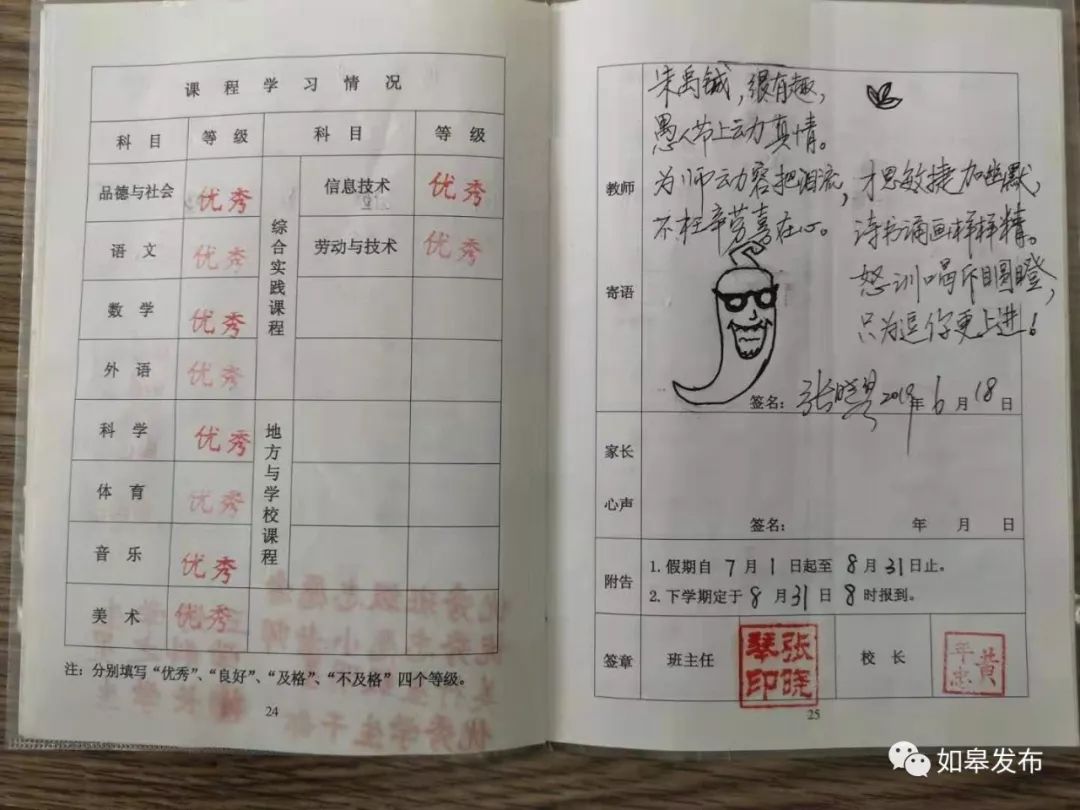 课程学习情况
科目 等级 科目 等级
品德与社会 优秀 综合实践课程 信息技术 优秀
语文 优秀 劳动与技术 优秀
数学 优秀
外语 优秀
科学 优秀 地方与学校课程
体育 优秀
音乐 优秀
美术 优秀
注：分别填写“优秀”、“良好”、“及格”、“不及格”四个等级。
24
教师寄语
宋禹铖，很有趣，
愚人节上动力真情。
为师动容把泪流，
不枉辛劳喜在心。
才思敏捷加幽默，
诗书诵画样样精。
怒训喝斥目圆瞪，
只为逗你更上进！
签名：张晓琴 2019年6月18日
家长心声
签名： 年 月 日
附告
1. 假期自7月1日起至8月31日止。
2. 下学期定于8月31日8时报到。
签章 班主任 张晓琴印 校长 黄年忠
25
优秀学生干部
如皋发布